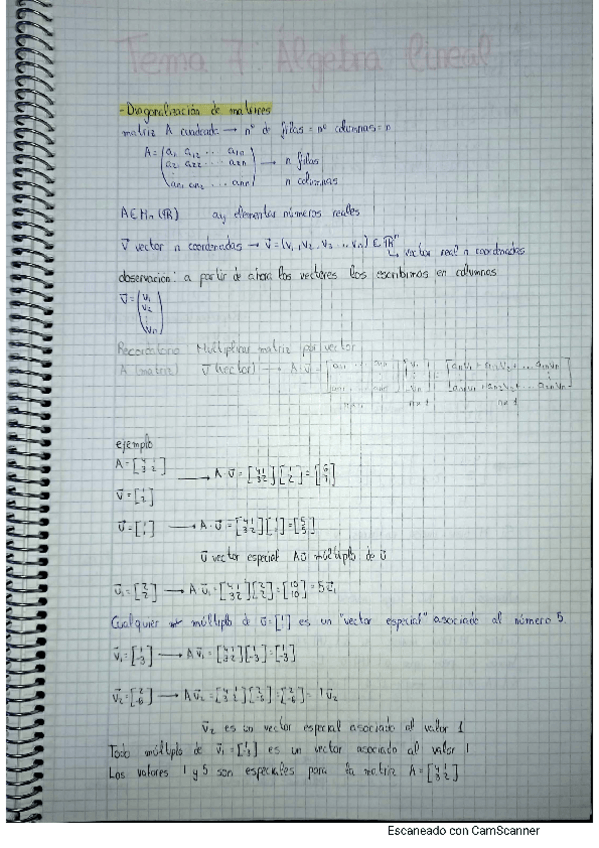 Tema 7: Álgebra lineal
- Diagonalización de matrices
matriz A cuadrada → nº de filas = nº columnas = n
A = (a₁ a₁₂ ... a₁ₙ
a₂ a₂₂ ... a₂ₙ → n filas
aₙ₁ aₙ₂ ... aₙₙ) n columnas
A ∈ Mₙ (ℝ) aᵢⱼ elementos números reales
v⃗ vector n coordenadas → v⃗ = (v₁, v₂, v₃ ... vₙ) ∈ ℝⁿ
↳ vector real n coordenadas
observación: a partir de ahora los vectores los escribimos en columnas
v⃗ = (v₁
v₂
⋮
vₙ)
Recordatorio Multiplicar matriz por vector
A (matriz) v⃗ (vector) → A · v⃗
ejemplo
A = [4 1; 3 2] → A · v⃗ = [4 1; 3 2] [1; 2] = [6; 7]
v⃗ = [1; 2]
v⃗ = [1; 1] → A · v⃗ = [4 1; 3 2] [1; 1] = [5; 5]
v⃗ vector especial Av⃗ múltiplo de v⃗
v⃗₁ = [2; 2] → A v⃗₁ = [4 1; 3 2] [2; 2] = [10; 10] = 5v⃗₁
Cualquier múltiplo de v⃗ = [1; 1] es un "vector especial" asociado al número 5
v⃗₁ = [1; -3] → A v⃗₁ = [4 1; 3 2] [1; -3] = [1; -3]
v⃗₂ = [2; -6] → A v⃗₂ = [4 1; 3 2] [2; -6] = [2; -6] = 1v⃗₂
v⃗₂ es un vector especial asociado al valor 1
Todo múltiplo de v⃗₁ = [1; -3] es un vector asociado al valor 1
Los valores 1 y 5 son especiales para la matriz A = [4 1; 3 2]
Escaneado con CamScanner